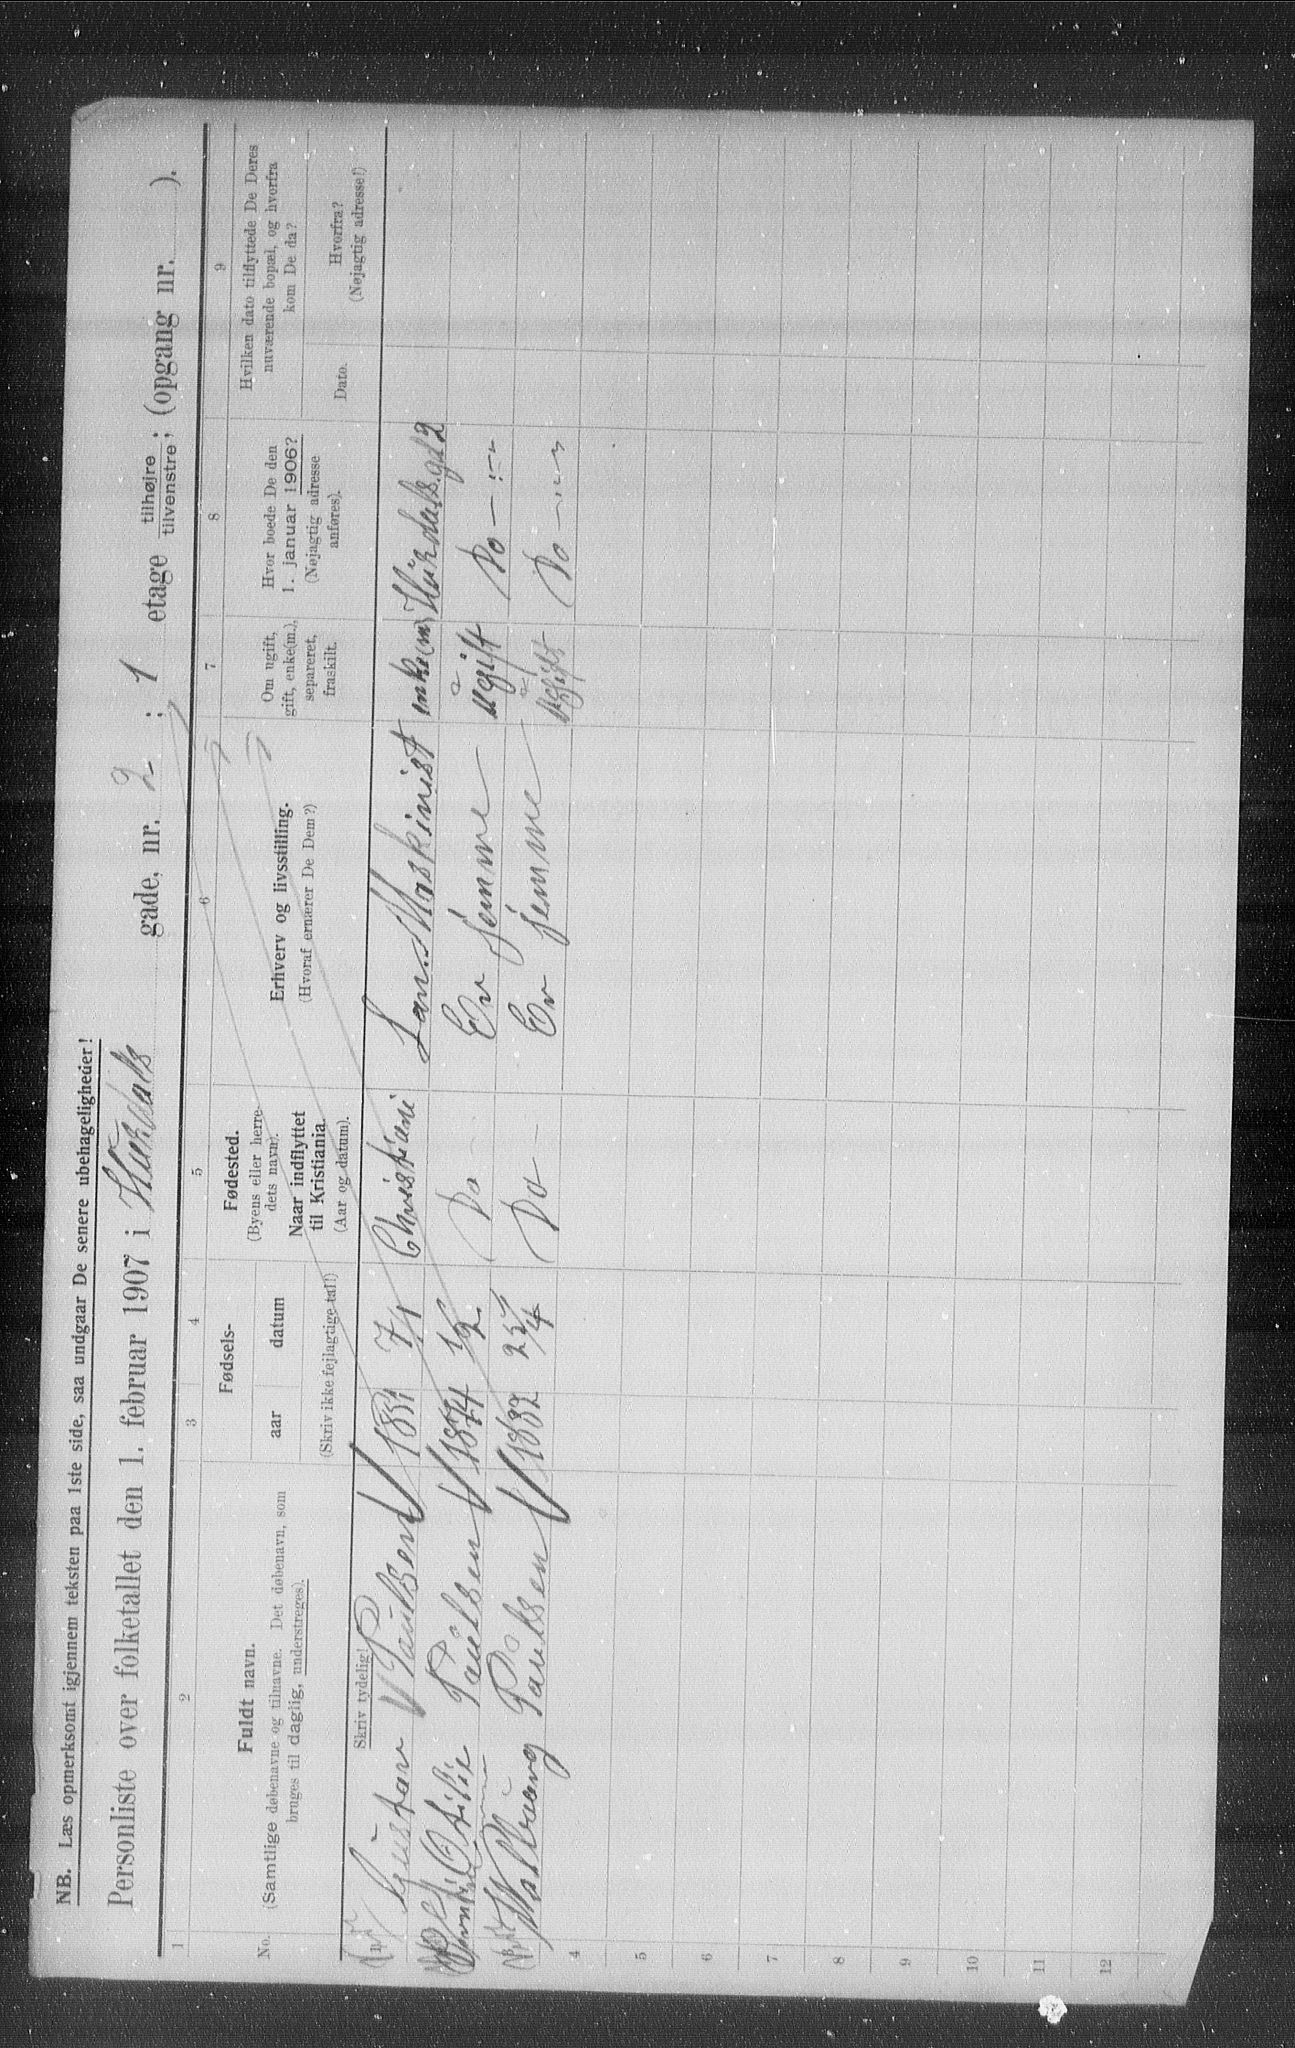 NB. Læs opmerksomt igjennem teksten paa 1ste side, saa undgaar De senere ubehageligheder!
Personliste over folketallet den 1. februar 1907 i Hurdals gade, nr. 2 ; 1 etage tilhøjre ; (opgang nr. ).
tilvenstre
1 2 3 4 5 6 7 8 9
No. Fuldt navn. (Samtlige døbenavne og tilnavne. Det døbenavn, som bruges til daglig, understreges).
Fødsels-
aar datum
(Skriv ikke fejlagtige tal!)
Fødested.
(Byens eller herredets navn).
Naar indflyttet til Kristiania.
(Aar og datum).
Erhverv og livsstilling.
(Hvoraf ernærer De Dem?)
Om ugift, gift, enke(m.), separeret, fraskilt.
Hvor boede De den 1. januar 1906?
(Nøjagtig adresse anføres).
Hvilken dato tilflyttede De Deres nuværende bopæl, og hvorfra kom De da?
Dato. Hvorfra?
(Nøjagtig adresse!)
Skriv tydelig!
1 Gustav Paulsen 1851 7/1 Christiani Maskinist enke(m) Hurdals.gd 2
Otilie Paulsen 1874 1/2 Do - Er jemme ugift Do - " -
Walbaarg Paulsen 1882 25/4 Do - Er jemme ugift Do - " -
4
5
6
7
8
9
10
11
12